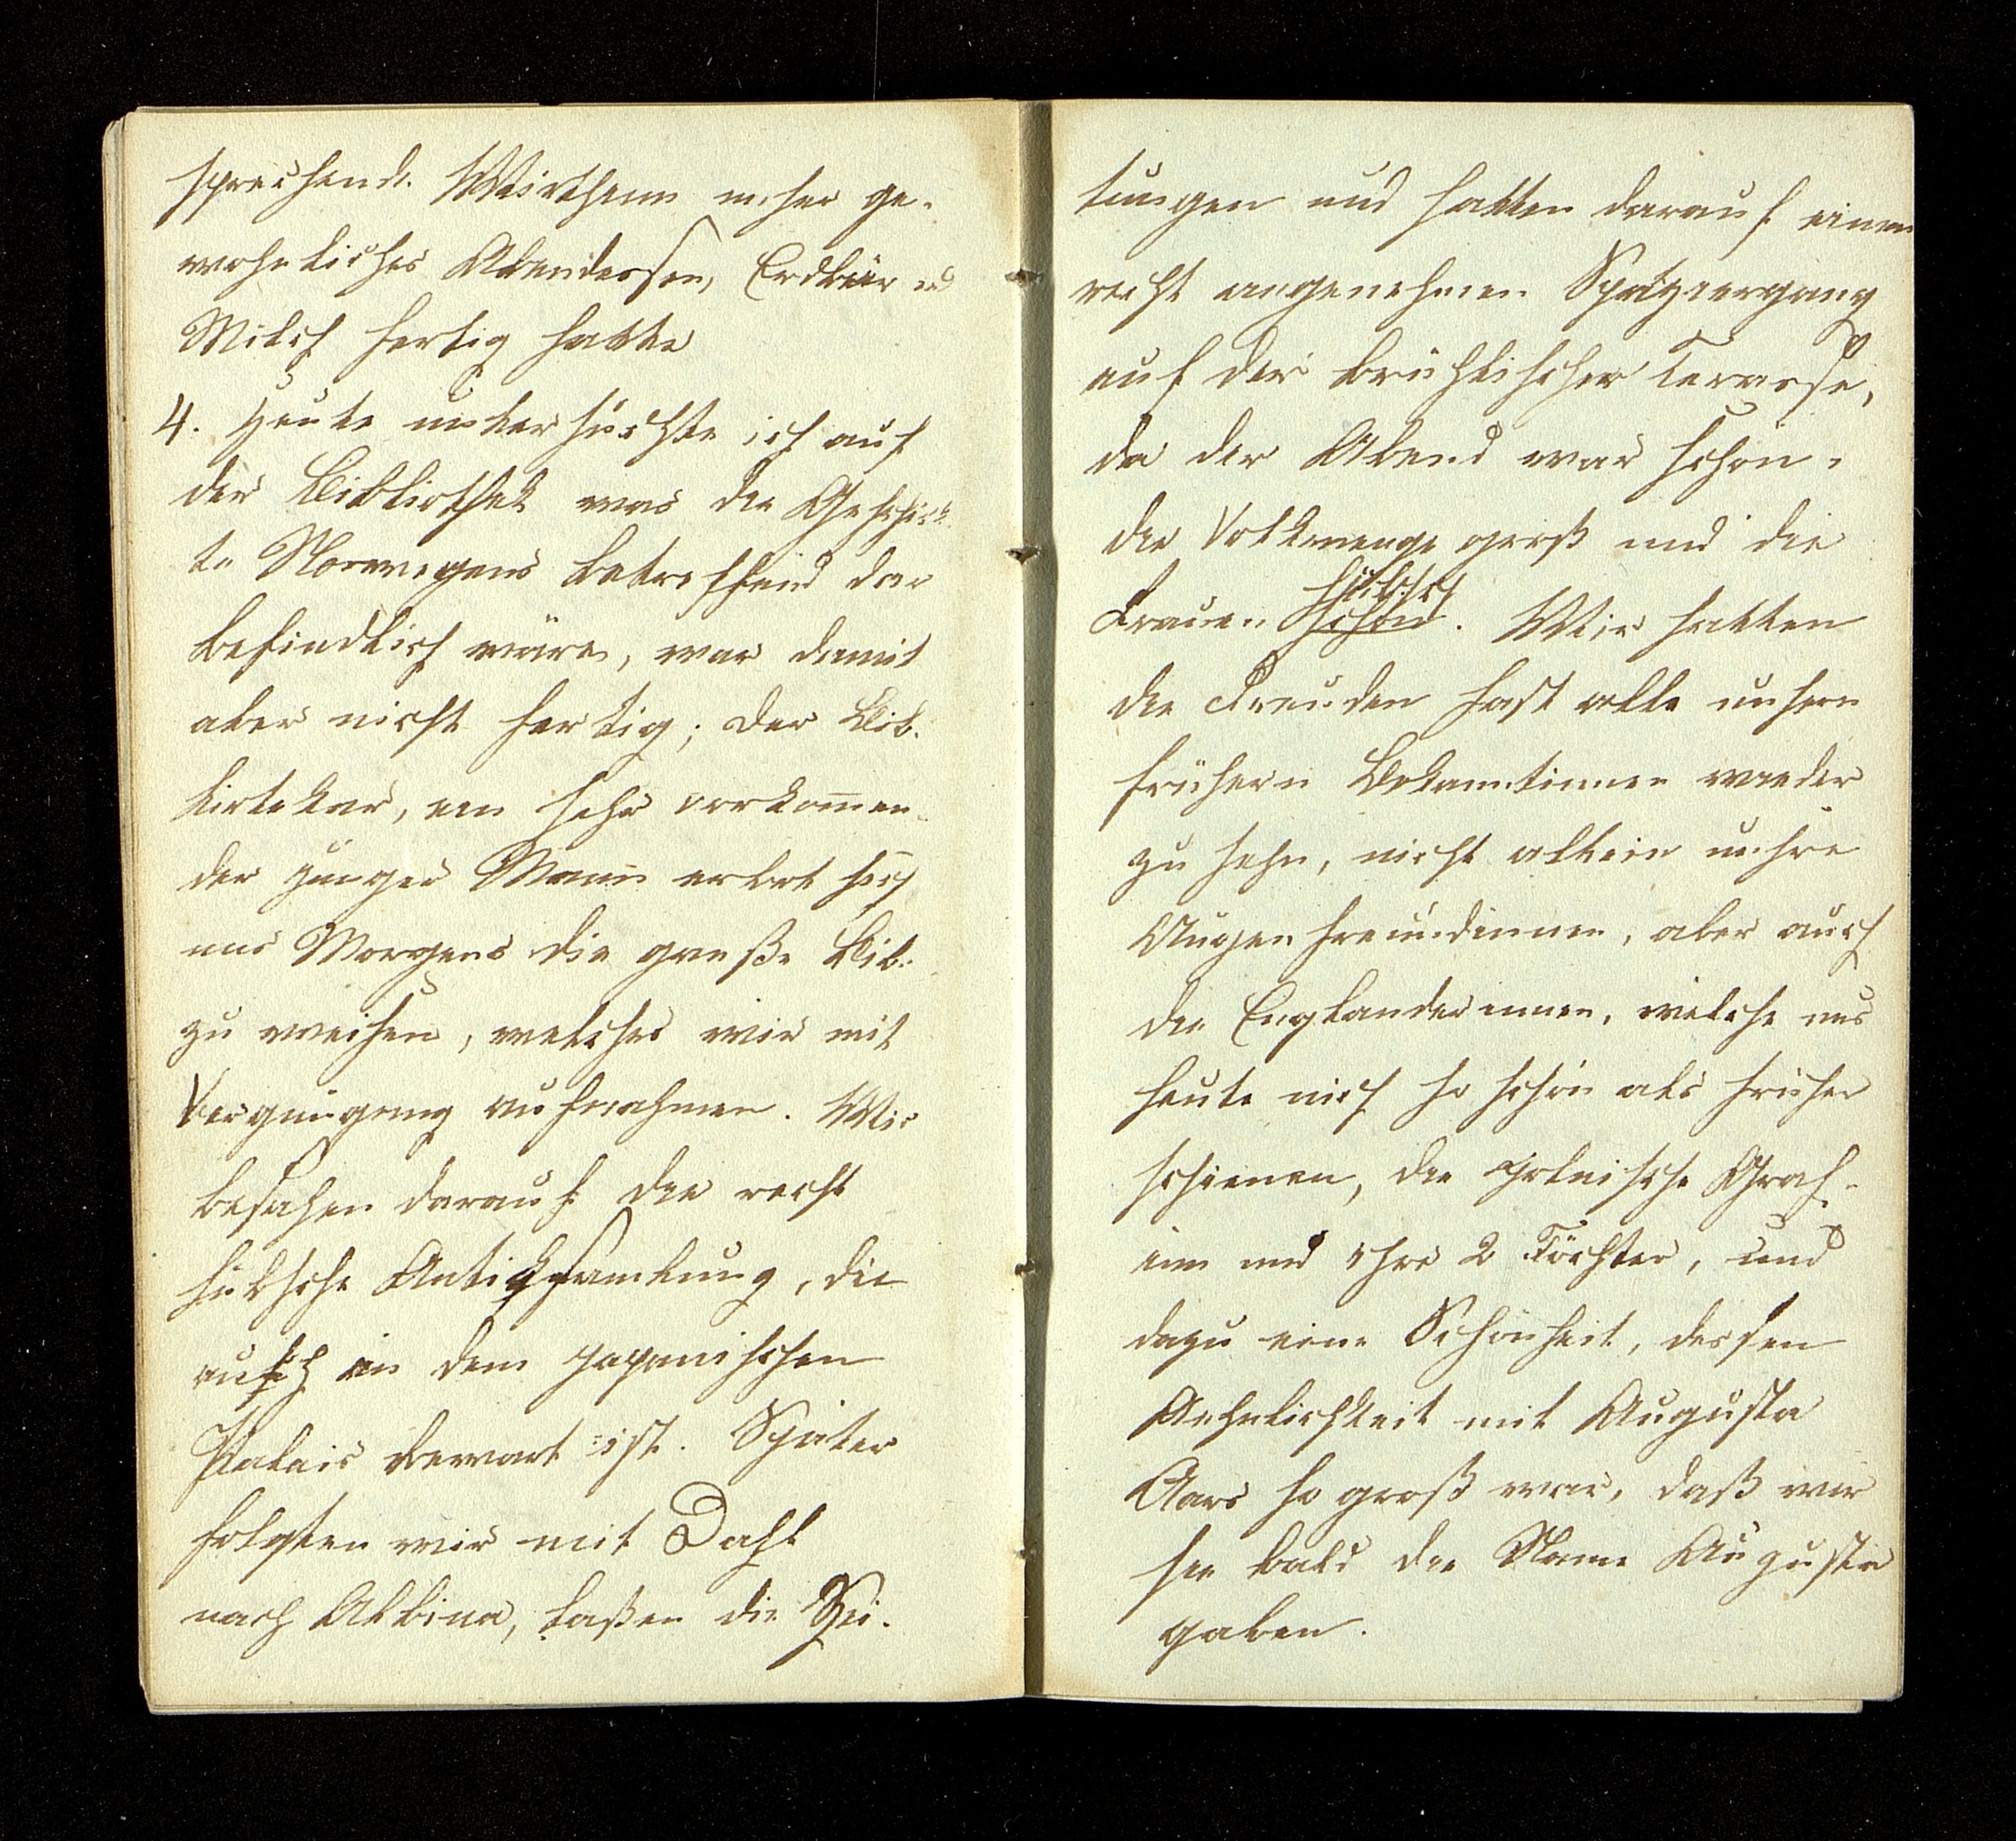 sprechende Wirthinn unser ge-
wohnliches Abendessen, Erdbär u
Milch fertig hatte
4. Heute untersuchte ich auf
der Bibliothek was die Geschich-
te Norwegens betreffend dar
befindlich wäre, war damit
aber nicht fertig; der Bib-
liotekar, ein sehr vorkom̅en-
der junger Mann erbot sich
uns Morgens die große Bib:
zu weisen, welches wir mit
Vergnügung aufnahmen. Wir
besahen darauf die recht
hübsche Antiksamlung, die
auch in dem japanischen
Palais bewart ist. Später
folgten wir mit Dahl
nach Albina, laßen die Zei-
tungen und hatten darauf einen
recht angenehmen Spatziergang
auf der brühlischer Terasse,
da der Abend war schön,
die Volkmenge groß und die
Frauen hübsch schön. Wir hatten
die Freuden fast alle unsern
frühern Bekanntinnen wieder
zu sehn, nicht allein unsre
Augenfreundinnen, aber auch
die Englanderinnen, welche uns
heute nich so schön als früher
schienen, die polnische Graf-
inn und ihre 2 Töchter, und
dazu eine Schönheit, dessen
Aehnlichkeit mit Augusta
Aars so groß war, daß wir
sie bald die Name Augusta
gaben.